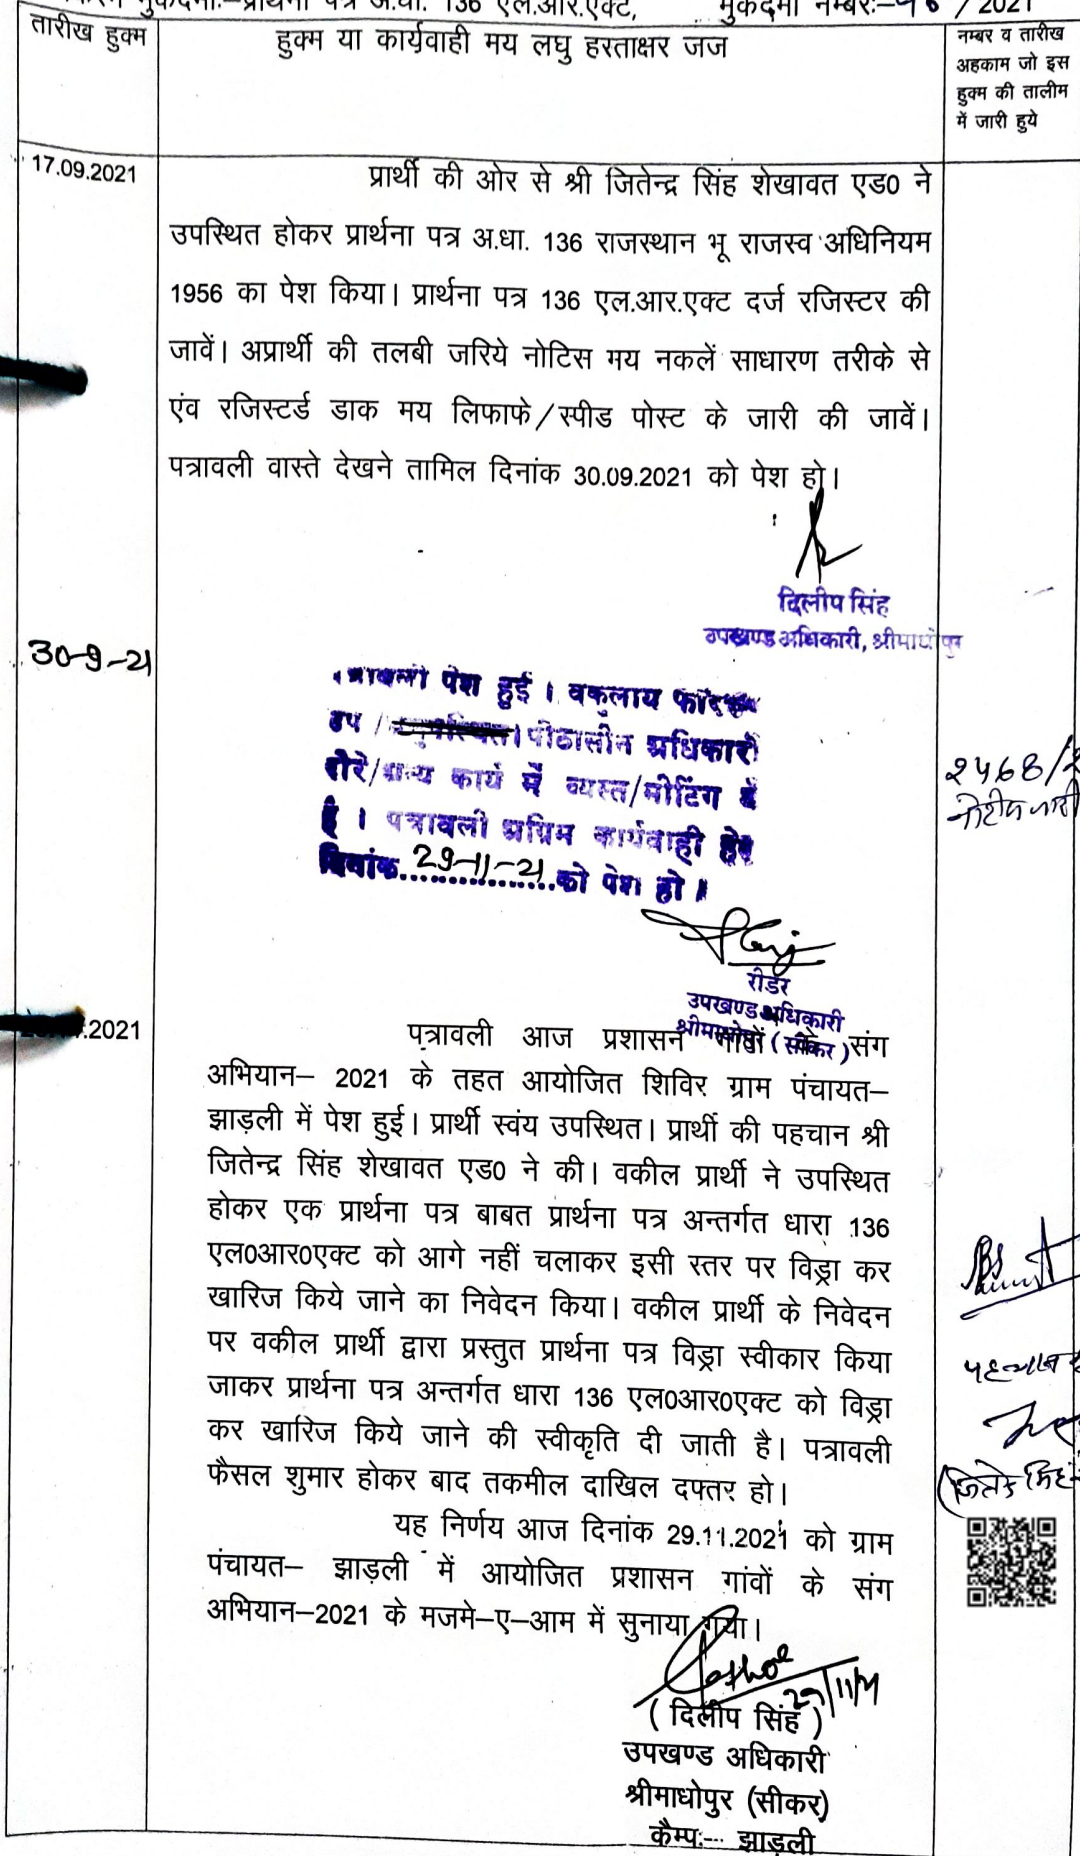 मुकदमा:–प्रार्थना पत्र अ.धा. 136 एल.आर.एक्ट, मुकदमा नम्बर:- / 2021
तारीख हुक्म
हुक्म या कार्यवाही मय लघु हस्ताक्षर जज
नम्बर व तारीख
अहकाम जो इस
हुक्म की तालीम
में जारी हुये
17.09.2021
प्रार्थी की ओर से श्री जितेन्द्र सिंह शेखावत एड0 ने
उपस्थित होकर प्रार्थना पत्र अ.धा. 136 राजस्थान भू राजस्व अधिनियम
1956 का पेश किया। प्रार्थना पत्र 136 एल.आर.एक्ट दर्ज रजिस्टर की
जावें। अप्रार्थी की तलबी जरिये नोटिस मय नकलें साधारण तरीके से
एंव रजिस्टर्ड डाक मय लिफाफे/स्पीड पोस्ट के जारी की जावें।
पत्रावली वास्ते देखने तामिल दिनांक 30.09.2021 को पेश हो।
दिलीप सिंह
उपखण्ड अधिकारी, श्रीमाधोपुर
30-9-21
पेश हुई । वकुलाय
उप / पीठासीन अधिकारी
दौरे/अन्य कार्य में व्यस्त/मीटिंग में
है । पत्रावली अग्रिम कार्यवाही हेतु
दिनांक..29-11-21..को पेश हो ।
2468/
नोटीस जारी
रीडर
उपखण्ड अधिकारी
श्रीमाधोपुर (सीकर)
.2021
पत्रावली आज प्रशासन गांवों के संग
अभियान– 2021 के तहत आयोजित शिविर ग्राम पंचायत–
झाड़ली में पेश हुई। प्रार्थी स्वंय उपस्थित। प्रार्थी की पहचान श्री
जितेन्द्र सिंह शेखावत एड0 ने की। वकील प्रार्थी ने उपस्थित
होकर एक प्रार्थना पत्र बाबत प्रार्थना पत्र अन्तर्गत धारा 136
एल0आर0एक्ट को आगे नहीं चलाकर इसी स्तर पर विड्रा कर
खारिज किये जाने का निवेदन किया। वकील प्रार्थी के निवेदन
पर वकील प्रार्थी द्वारा प्रस्तुत प्रार्थना पत्र विड्रा स्वीकार किया
जाकर प्रार्थना पत्र अन्तर्गत धारा 136 एल0आर0एक्ट को विड्रा
कर खारिज किये जाने की स्वीकृति दी जाती है। पत्रावली
फैसल शुमार होकर बाद तकमील दाखिल दफ्तर हो।
यह निर्णय आज दिनांक 29.11.2021 को ग्राम
पंचायत– झाड़ली में आयोजित प्रशासन गांवों के संग
अभियान–2021 के मजमे–ए–आम में सुनाया गया।
29/11/21
( दिलीप सिंह )
उपखण्ड अधिकारी
श्रीमाधोपुर (सीकर)
कैम्प:-- झाड़ली